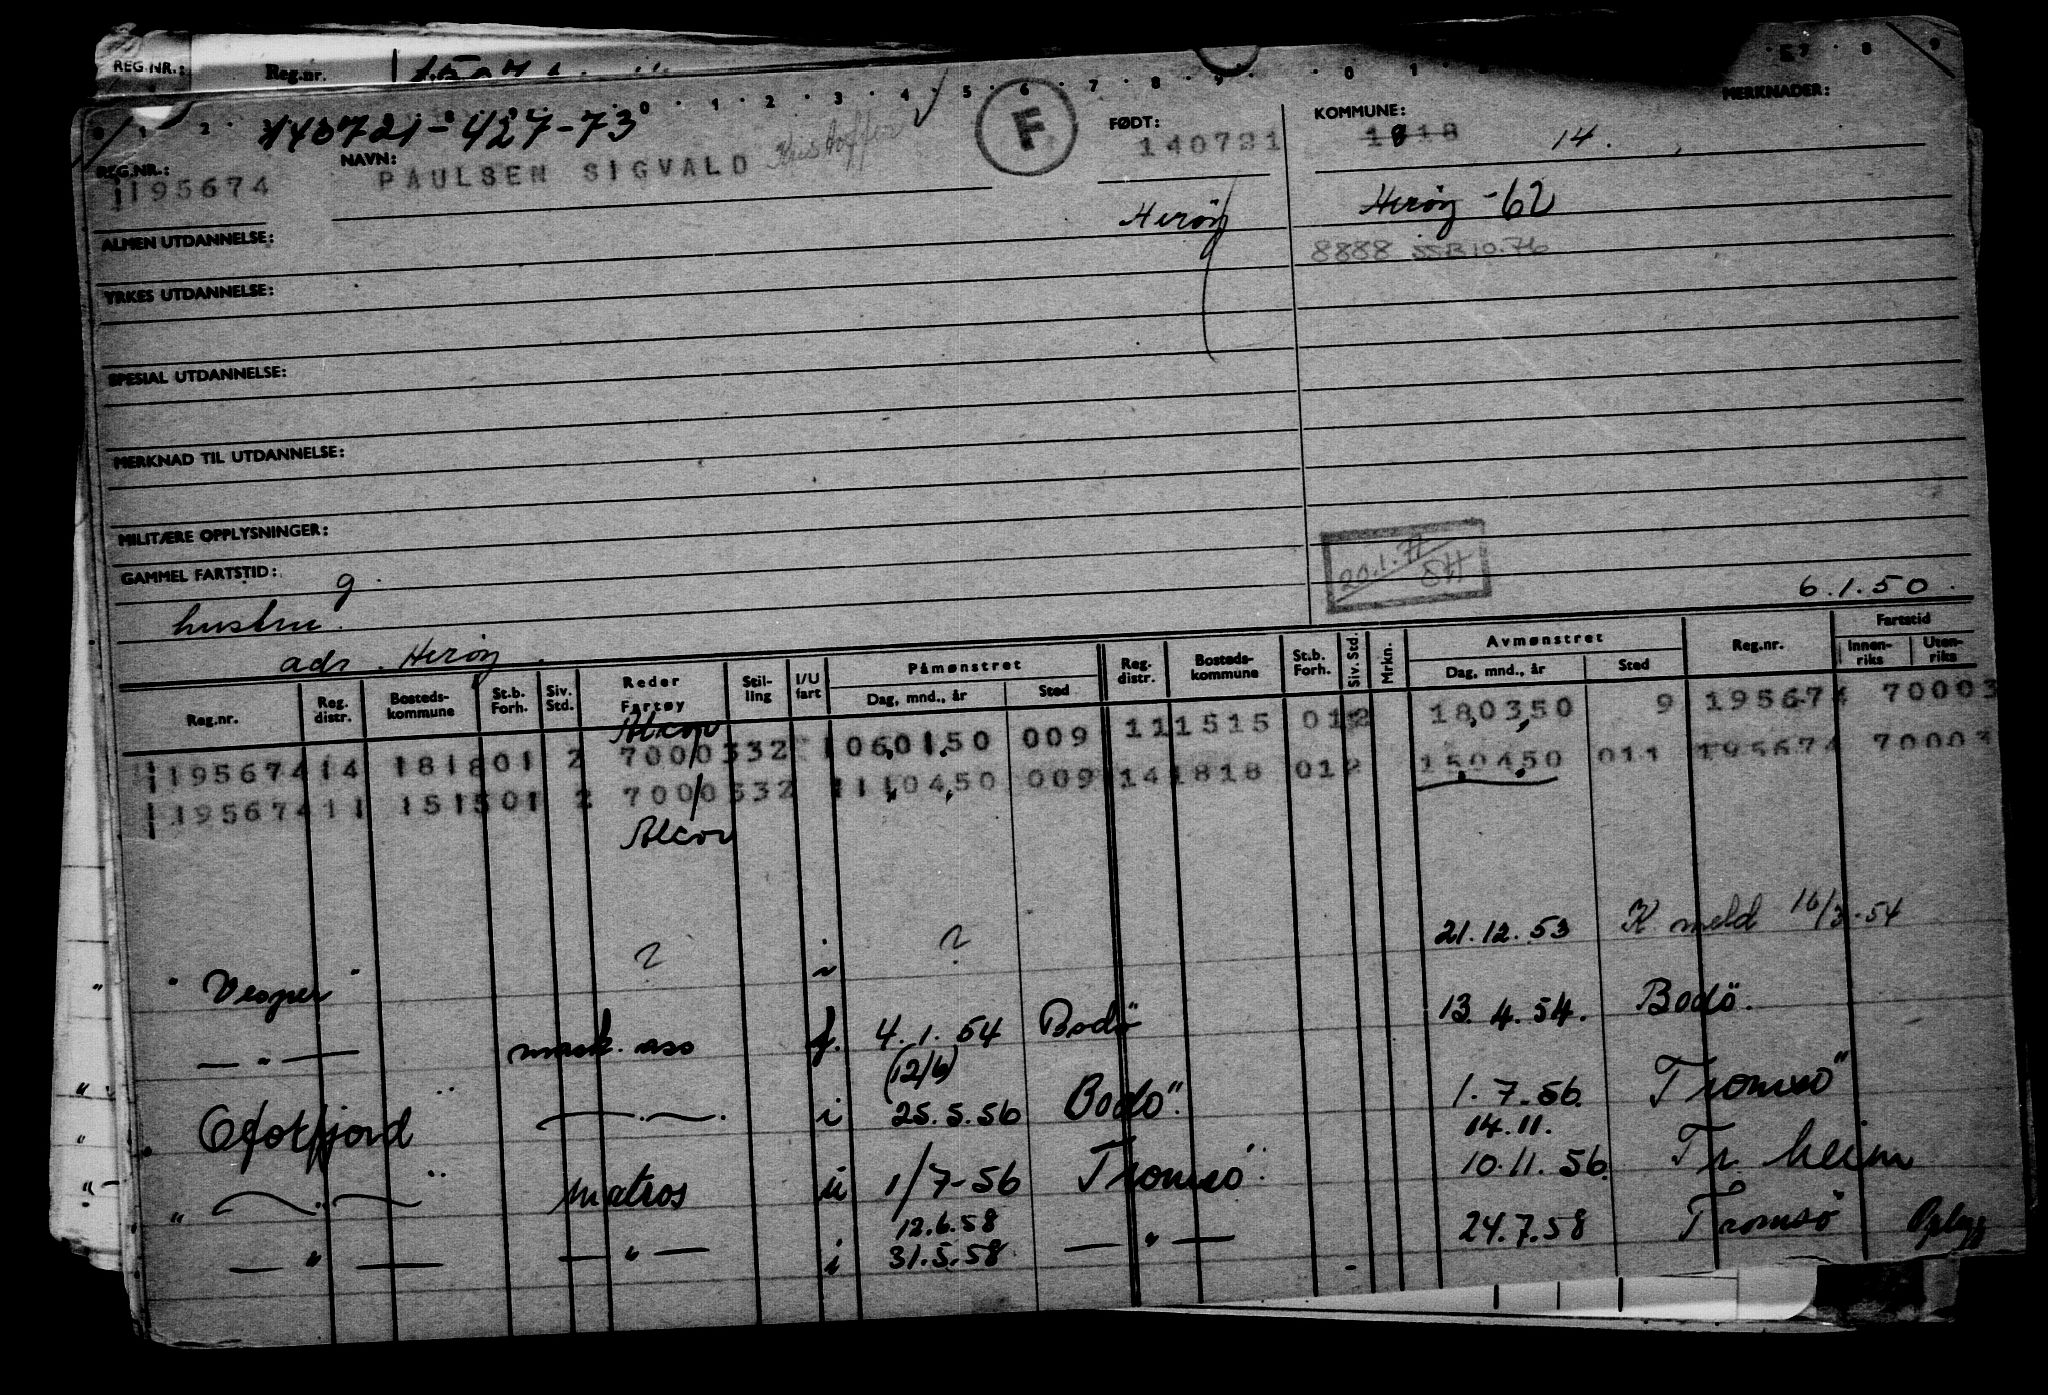 REG. NR.: Reg.nr.
140721-427-73
REG.NR.: NAVN: FØDT: KOMMUNE: MERKNADER:
195674 PAULSEN SIGVALD Kristoffer F 140721 1818 14.
Herøy Herøy -62
ALMEN UTDANNELSE: 8888 SSB 10.76
YRKES UTDANNELSE:
SPESIAL UTDANNELSE:
MERKNAD TIL UTDANNELSE:
MILITÆRE OPPLYSNINGER:
20.1.71
GAMMEL FARTSTID: g. 6.1.50.
hustru.
adr. Herøy.
Reg.nr. Reg. distr. Bosteds- kommune St.b. Forh. Siv. Std. Reder Fartøy Stil- ling I/U fart Påmønstret Dag, mnd., år Sted Reg. distr. Bosteds- kommune St.b. Forh. Siv. Std. Mrkn. Avmønstret Dag, mnd., år Sted Reg.nr. Fartstid Innen- riks Uten- riks
Alcor
195674 14 1818 01 2 7000532 1 060150 009 11 1515 01 2 180350 9 195674 70003
195674 11 1515 01 2 7000532 1 110450 009 14 1818 01 2 150450 011 195674 70003
Alcor
"Vesper" ? ? 21.12.53 K meld 16/3-54
— " — mask. ass f. 4.1.54 Bodö 13.4.54. Bodö.
(12/6)
"Ofotfjord" — . — i 25.5.56 Bodö. 1.7.56. Tromsö
14.11.
" — . — " matros u 1/7-56 Tromsö. 10.11.56. Tr. heim
12.6.58
— " — — " — i 31.5.58 — " — 24.7.58 Tromsö Oplagg